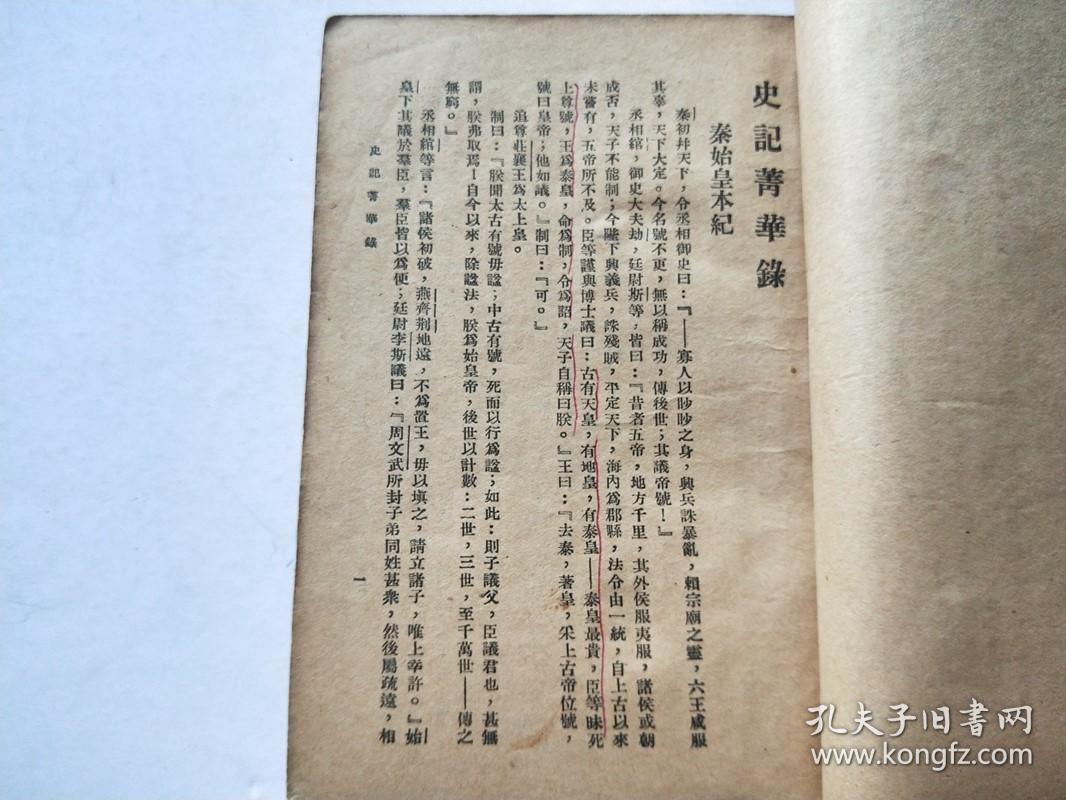 史記菁華錄
秦始皇本紀
秦初幷天下，令丞相御史曰：『——寡人以眇眇之身，興兵誅暴亂，賴宗廟之靈，六王咸服
其辜，天下大定。今名號不更，無以稱成功，傳後世；其議帝號！』
丞相綰，御史大夫劫，廷尉斯等，皆曰：『昔者五帝，地方千里，其外侯服夷服，諸侯或朝
或否，天子不能制；今陛下興義兵，誅殘賊，平定天下，海內爲郡縣，法令由一統，自上古以來
未嘗有，五帝所不及。臣等謹與博士議曰：古有天皇，有地皇，有泰皇——泰皇最貴，臣等昧死
上尊號，王爲泰皇，命爲制，令爲詔，天子自稱曰朕。』王曰：『去泰，著皇，采上古帝位號，
號曰皇帝；他如議。』制曰：『可。』
追尊莊襄王爲太上皇。
制曰：『朕聞太古有號毋諡；中古有號，死而以行爲諡；如此：則子議父，臣議君也，甚無
謂，朕弗取焉！自今以來，除諡法，朕爲始皇帝，後世以計數：二世，三世，至千萬世——傳之
無窮。』
丞相綰等言：『諸侯初破，燕齊荆地遠，不爲置王，毋以塡之，請立諸子，唯上幸許。』始
皇下其議於羣臣，羣臣皆以爲便；廷尉李斯議曰：『周文武所封子弟同姓甚衆，然後屬疏遠，相
史記菁華錄
一
孔夫子旧书网
www.kongfz.com